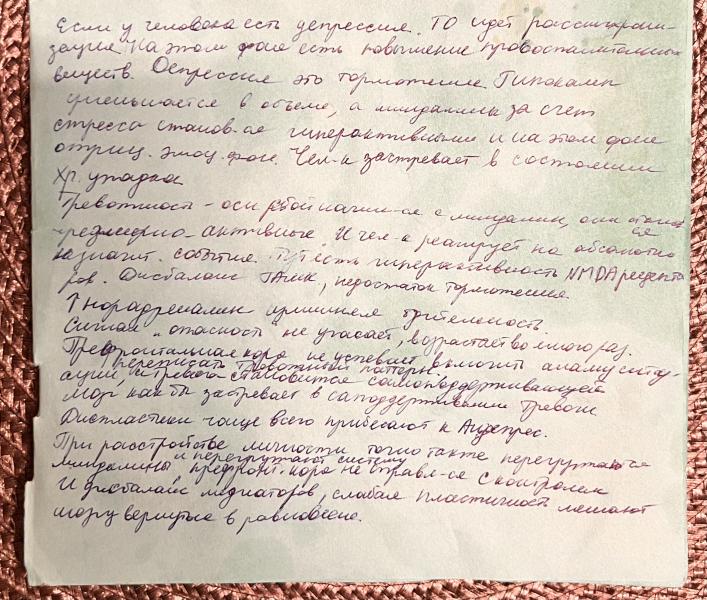 Если у человека есть депрессия. ТО идет рассинхрони-
зация. На этом фоне есть повышение провоспалительных
веществ. Депрессия это торможение. Гипокамп
уменьшается в объеме, а миндалины за счет
стресса станов-ся гиперактивными и на этом фоне
отриц. эмоц. фон. Чел-к застревает в состоянии
Хр. упадка
Тревожность - оси начин-ся с миндалин, они
чрезмерно-активные И чел-к реагирует на абсолютно
незначит. события. Тут есть гиперактивность NMDA рецепто
ров. Дисбаланс ГАМК, недостаток торможения.
↑ норадреналин бдительность.
Сигнал "опасность" не угасает, возрастает во много раз.
Префронтальная кора не успевает выключить аламу ситу-
переписать тревожный паттерн.
ации, и тревога становится самоподдерживающей
Мозг как бы застревает в саподдерживании тревоги
чаще всего прибегают к Андепрес.
При расстройстве личности точно также перегружаются
и перегружают систему
миндалины, префронт. кора не справл-ся с контролем
И дисбаланс медиаторов, слабая пластичность мешают
мозгу вернуться в равновесие.